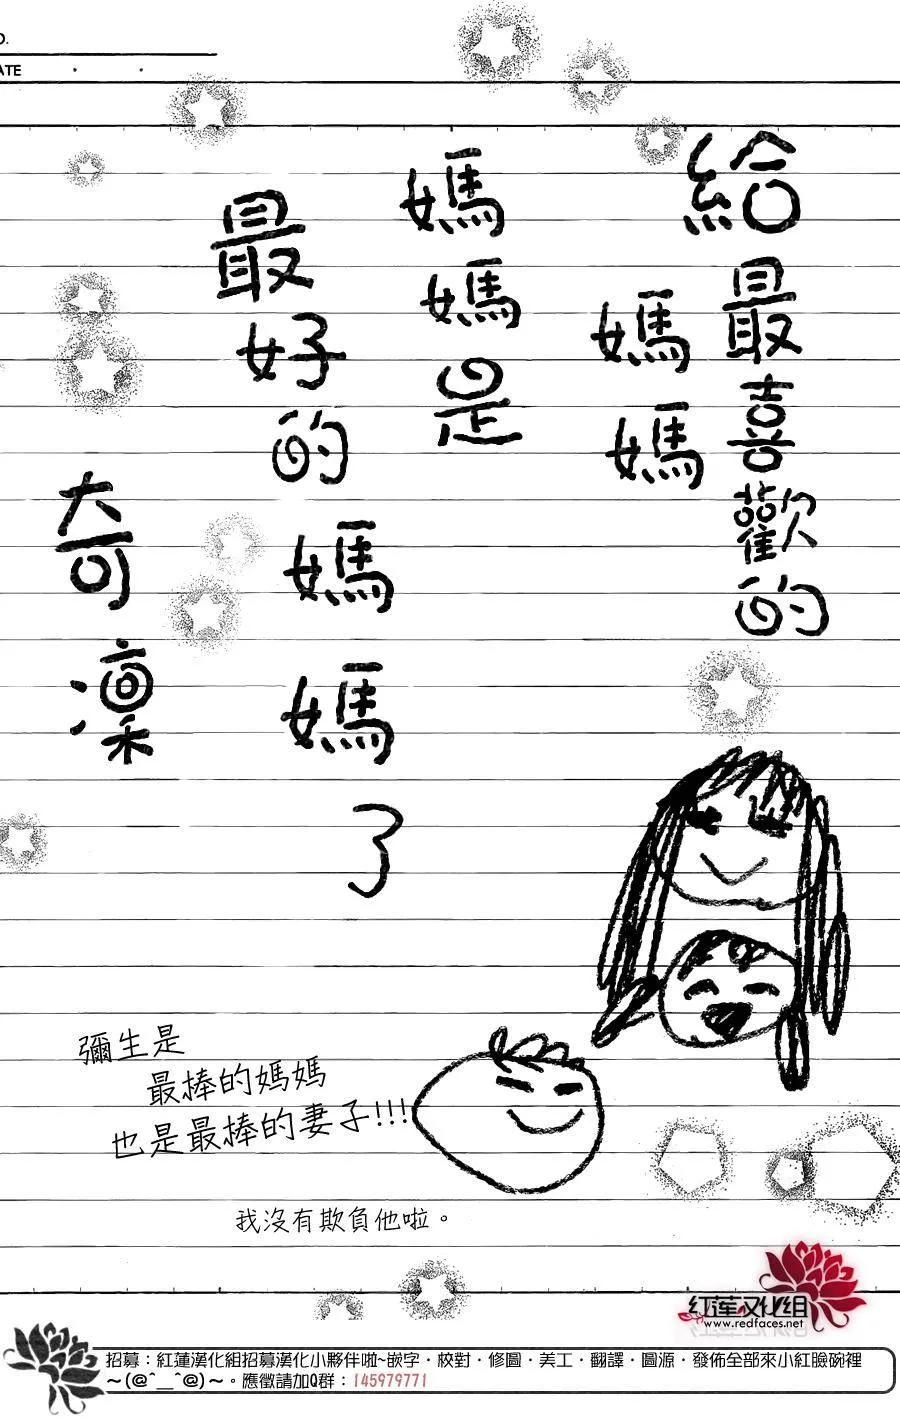 O.
ATE
給最喜歡的
媽媽
媽媽是
最好的
媽媽了
奇凜
彌生是
最捧的媽媽
也是最捧的妻子!!!
我沒有欺負他啦。
紅蓮文化組
www.redfaces.net
招募：紅蓮漢化組招募漢化小夥伴啦~嵌字・校對・修圖・美工・翻譯・圖源・發佈全部來小紅臉碗裡
～(@^__^@)～。應徵請加Q群：145979771